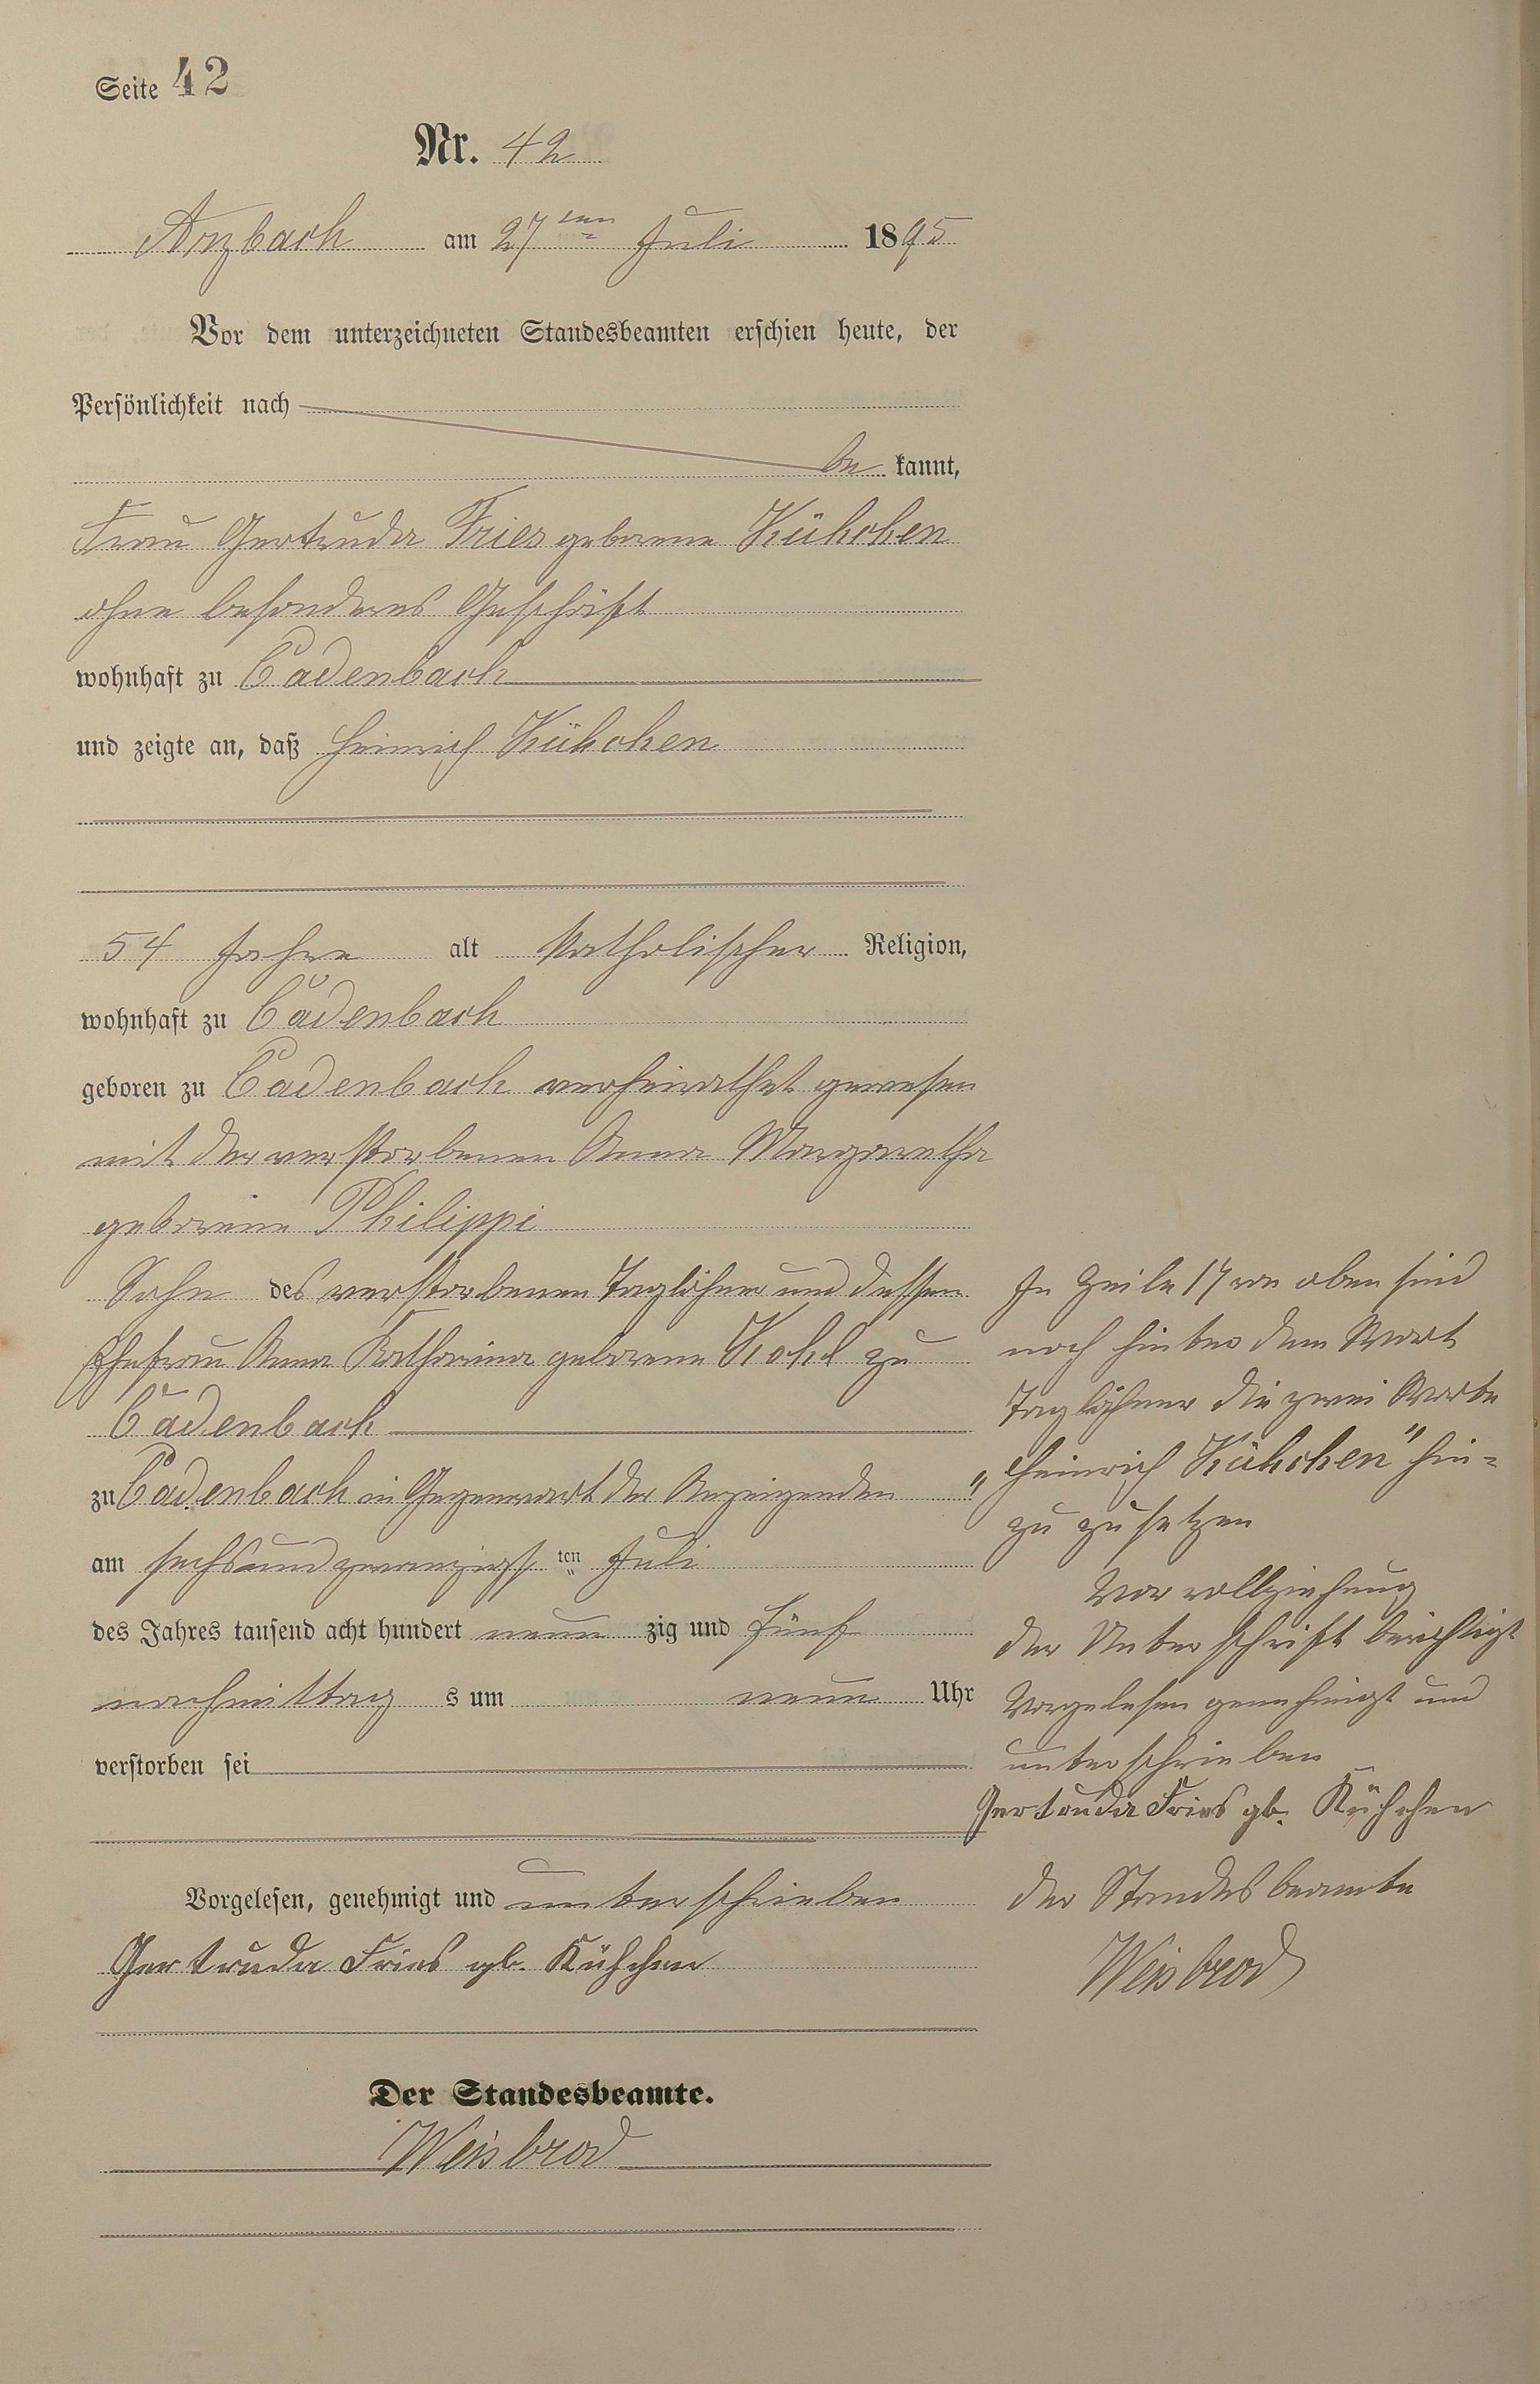 Seite 42
Nr. 42
Arzbach am 27ten Juli 1895
Vor dem unterzeichneten Standesbeamten erschien heute, der
Persönlichkeit nach
be kannt,
Frau Gertruda Fries geborene Kühchen
ohne besonderes Geschäft
wohnhaft zu Cadenbach
und zeigte an, daß Heinrich Kühchen
54 Jahre alt katholischer Religion,
wohnhaft zu Cadenbach
geboren zu Cadenbach verheirathet gewesen
mit der verstorbenen Anna Margaretha
geborene Philippi
Sohn des verstorbenen Taglöhner und dessen
Ehefrau Anna Katharina geborene Kohl zu
Cadenbach
zu Cadenbach in Gegenwart der Anzeigenden
am sechsundzwanzigsten Juli
des Jahres tausend acht hundert neun zig und fünf
nachmittag s um neun Uhr
verstorben sei
Vorgelesen, genehmigt und unterschrieben
Gertruda Fries gb. Kühchen
Der Standesbeamte.
Weisbrod
In Zeile 17 von oben sind
noch hinter dem Wort
Taglöhner die zwei Worte
"Heinrich Kühchen" hin-
zu zu setzen
Vor vollziehung
der Unterschrift berichtigt
Vorgelesen genehmigt und
unterschrieben
Gertruda Fries gb. Kühchen
Der Standesbeamte
Weisbrod